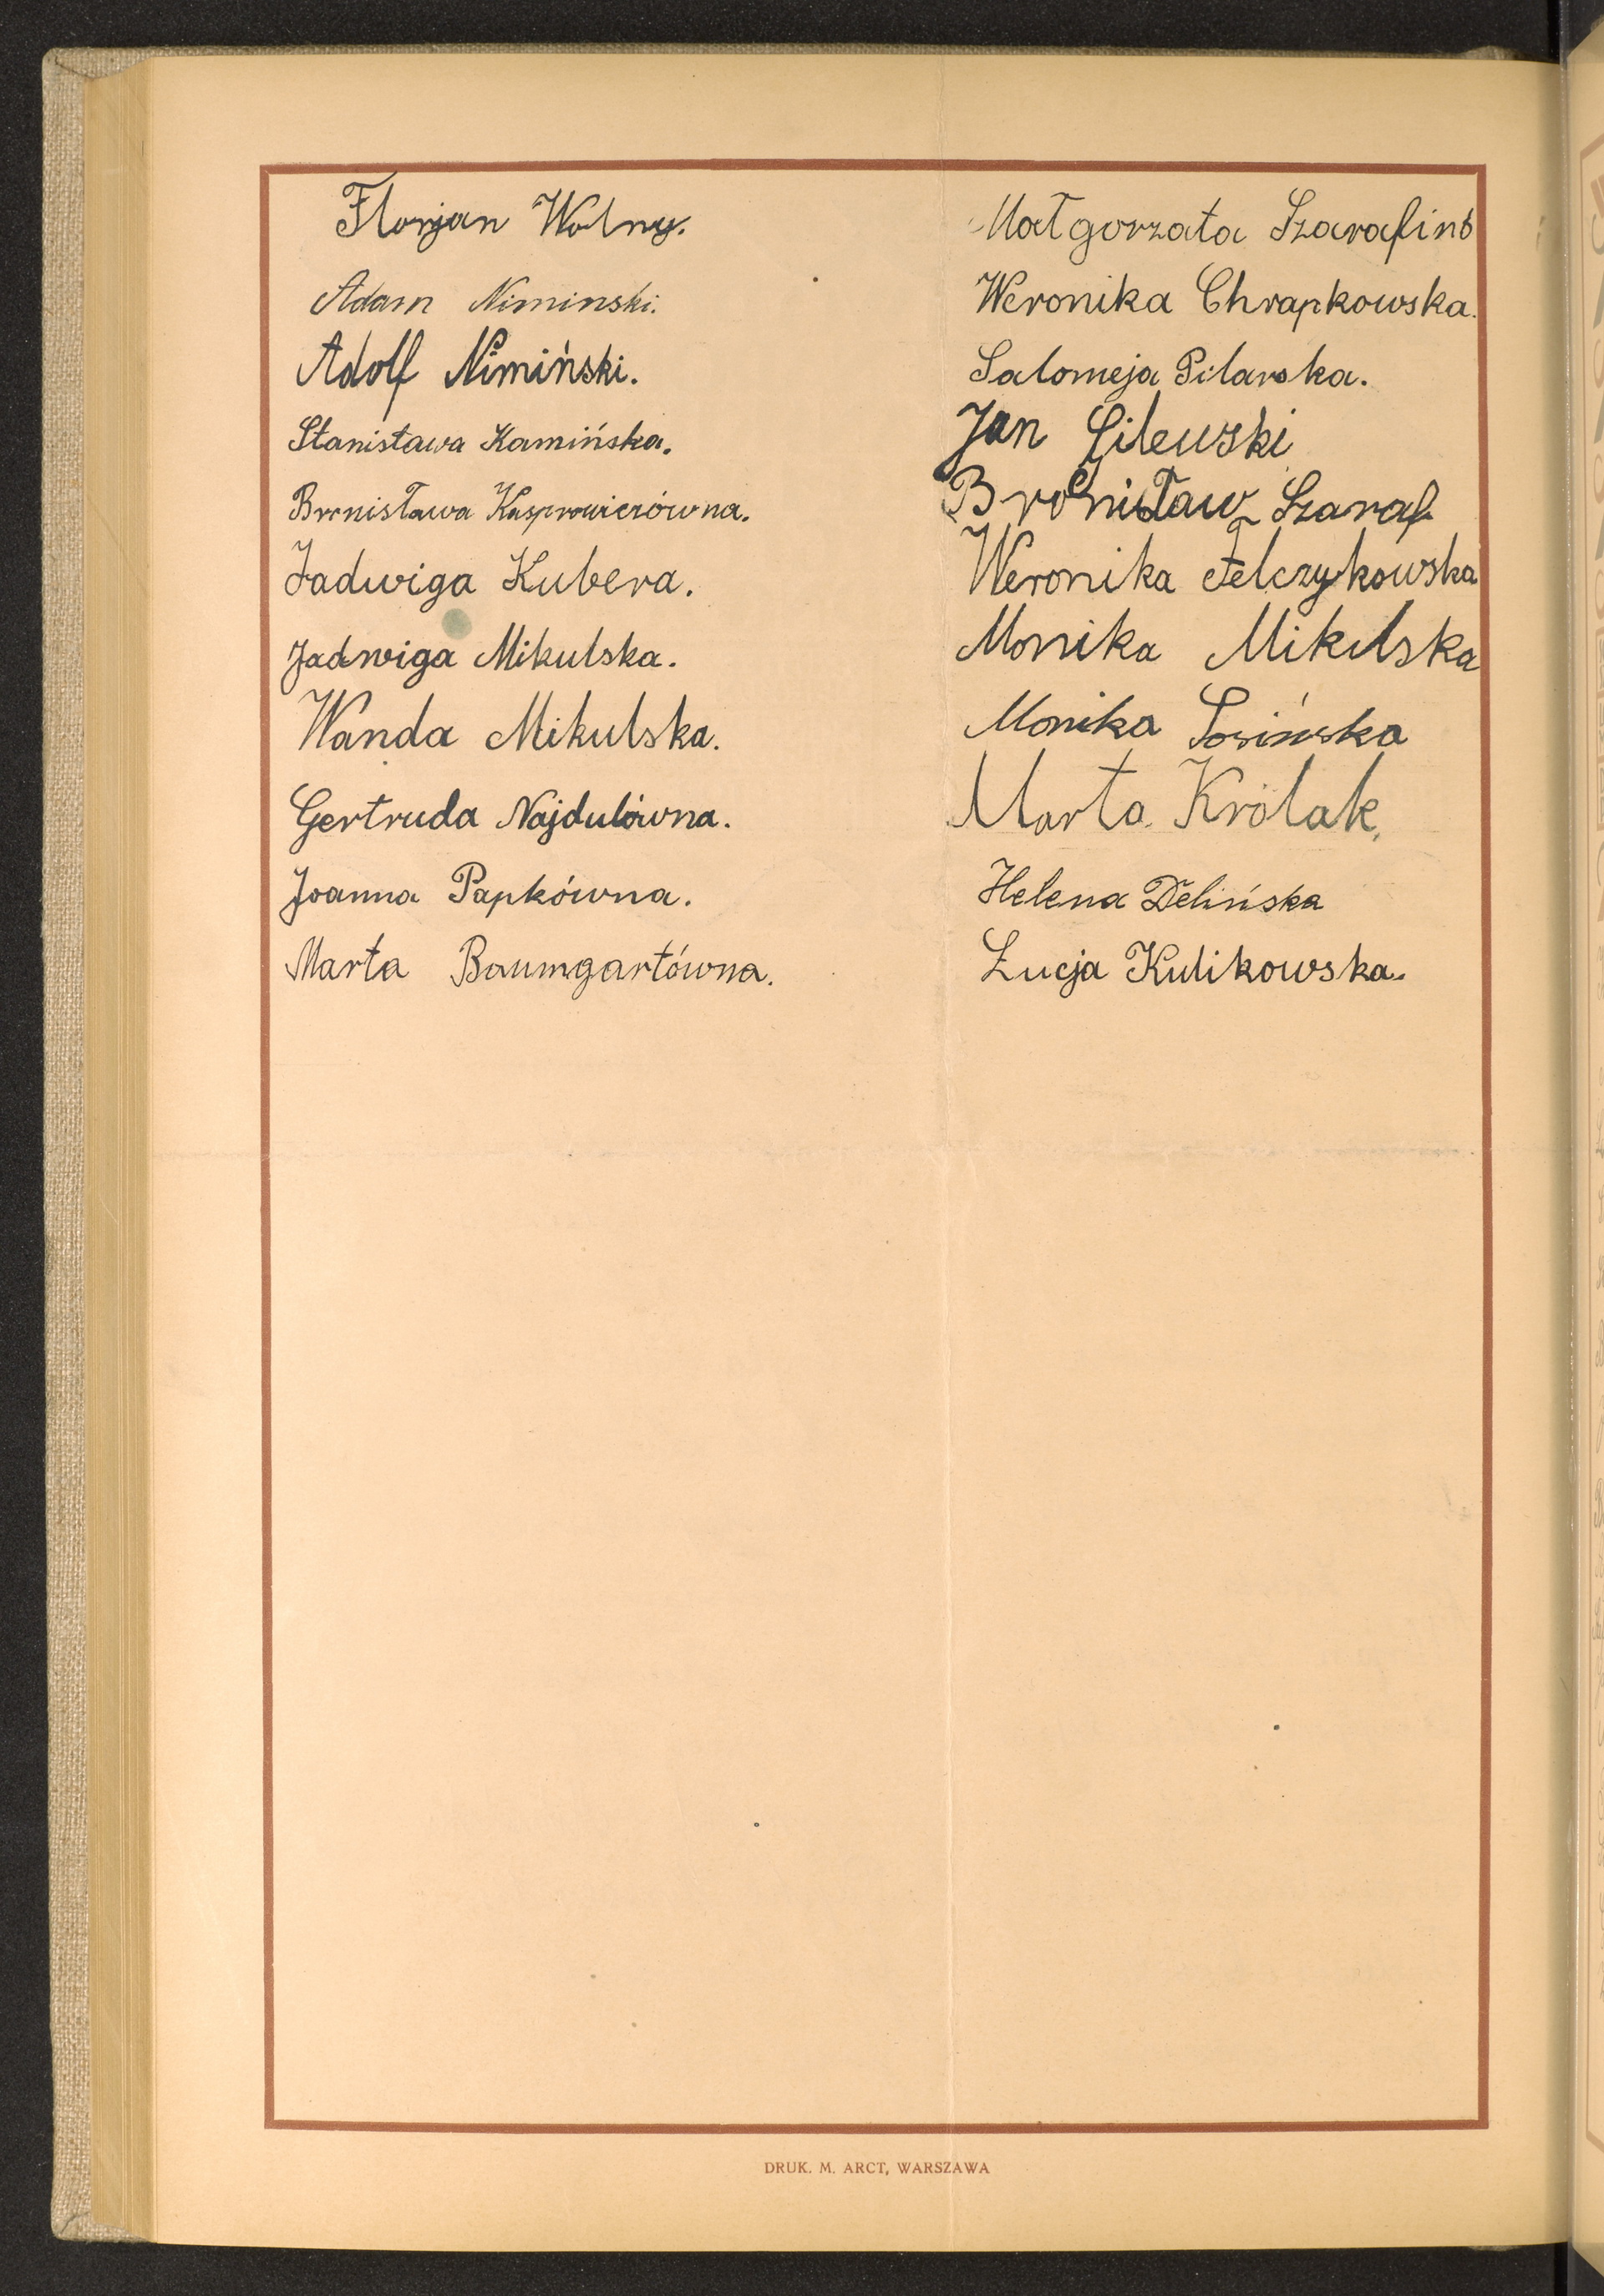 Florjan Wolny.
Adam Niminski.
Adolf Nimiński.
Stanisława Kamińska.
Bronisława Kasprowiczówna.
Jadwiga Kubera.
Jadwiga Mikulska.
Wanda Mikulska.
Gertruda Najdulówna.
Joanna Papkówna.
Marta Baumgartówna.
Małgorzata
Weronika Chrapkowska.
Salomeja Pilarska.
Jan Gilewski
Bronisław Szaraf
Weronika Felczykowska
Monika Mikulska
Monika Sosińska
Marta Królak.
Helena Delińska
Łucja Kulikowska.
DRUK. M. ARCT, WARSZAWA